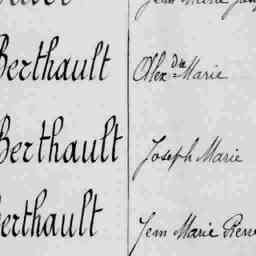 Berthault Alex.dre Marie
Berthault Joseph Marie
Berthault Jean Marie Pierre